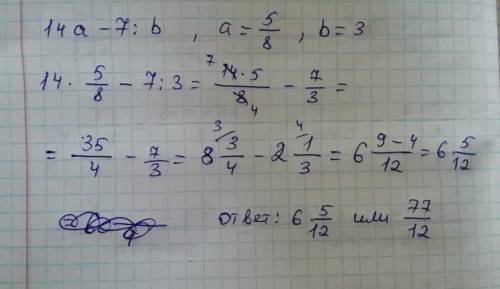 14a - 7 : b , a = 5/8 , b = 3
14 · 5/8 - 7 : 3 = 7 14 · 5 / 8 4 - 7/3 =
= 35/4 - 7/3 = 8 3/ 3/4 - 2 4/ 1/3 = 6 9-4/12 = 6 5/12
ответ: 6 5/12 или 77/12